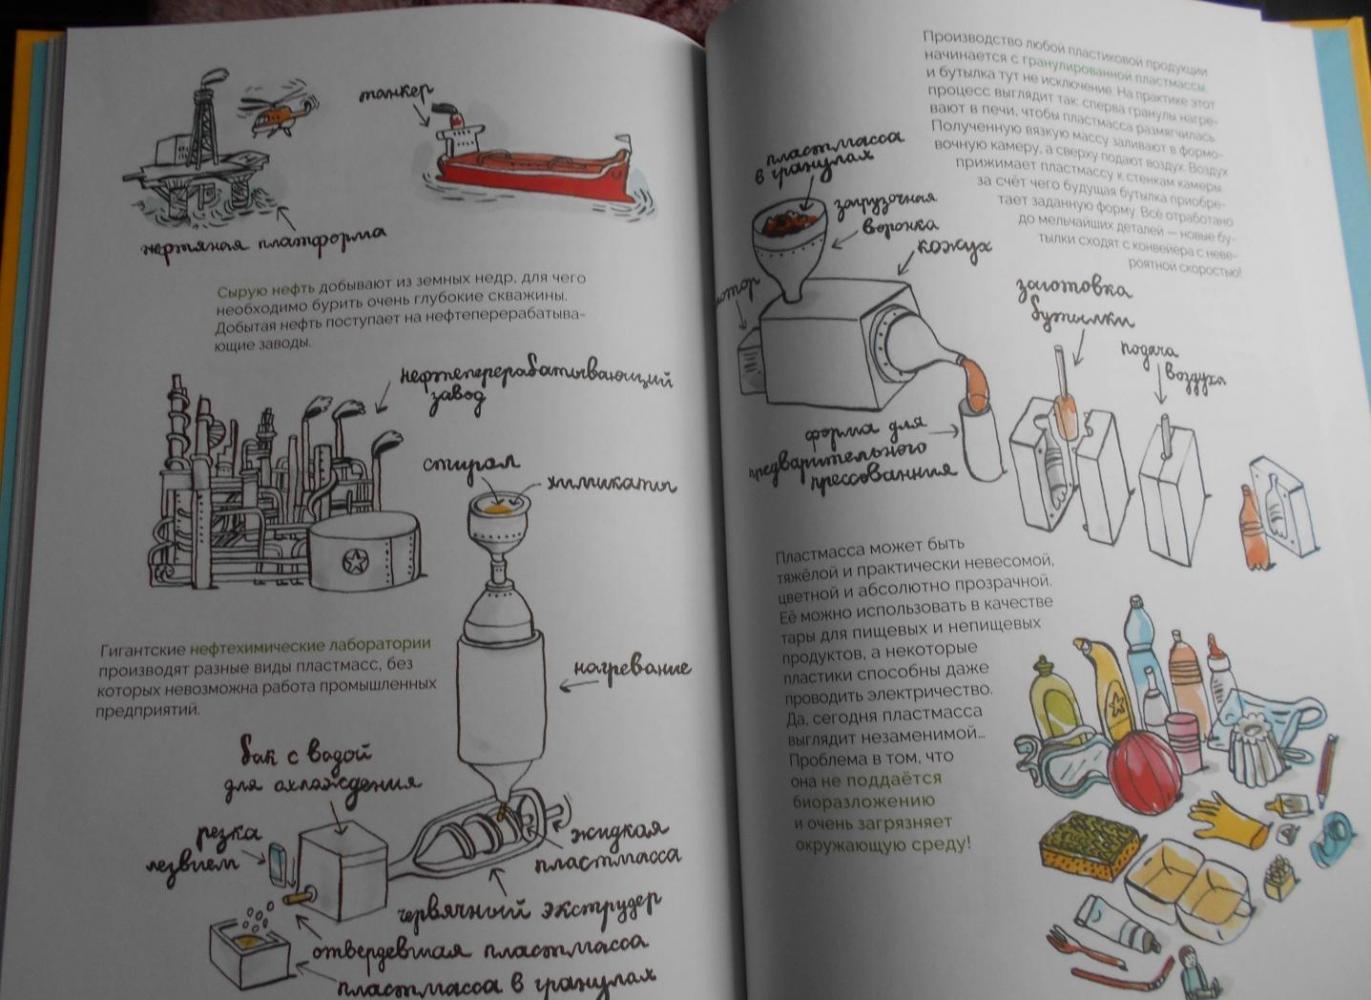 танкер
нефтяная платформа
Сырую нефть добывают из земных недр, для чего
необходимо бурить очень глубокие скважины.
Добытая нефть поступает на нефтеперерабатыва-
ющие заводы.
нефтеперерабатывающий
завод
стирол
химикаты
Гигантские нефтехимические лаборатории
производят разные виды пластмасс, без
которых невозможна работа промышленных
предприятий.
нагревание
бак с водой
для охлаждения
резка
лезвием
жидкая
пластмасса
червячный экструдер
отвердевшая пластмасса
пластмасса в гранулах
Производство любой пластиковой продукции
начинается с гранулированной пластмассы,
и бутылка тут не исключение. На практике этот
процесс выглядит так: сперва гранулы нагре-
вают в печи, чтобы пластмасса размягчилась.
Полученную вязкую массу заливают в формо-
вочную камеру, а сверху подают воздух. Воздух
прижимает пластмассу к стенкам камеры,
за счёт чего будущая бутылка приобре-
тает заданную форму. Всё отработано
до мельчайших деталей — новые бу-
тылки сходят с конвейера с неве-
роятной скоростью!
пластмасса
в гранулах
загрузочная
воронка
кожух
мотор
заготовка
бутылки
подача
воздуха
форма для
предварительного
прессования
Пластмасса может быть
тяжёлой и практически невесомой,
цветной и абсолютно прозрачной.
Её можно использовать в качестве
тары для пищевых и непищевых
продуктов, а некоторые
пластики способны даже
проводить электричество.
Да, сегодня пластмасса
выглядит незаменимой...
Проблема в том, что
она не поддаётся
биоразложению
и очень загрязняет
окружающую среду!